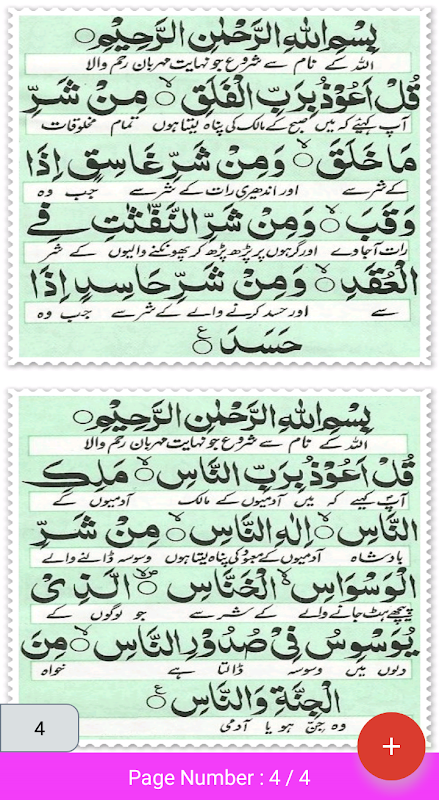 بِسْمِ اللهِ الرَّحْمٰنِ الرَّحِيْمِ
اللہ کے نام سے شروع جو نہایت مہربان رحم والا
قُلْ اَعُوْذُ بِرَبِّ الْفَلَقِ ۙ مِنْ شَرِّ
آپ کہیئے کہ میں صبح کے مالک کی پناہ لیتا ہوں تمام مخلوقات
مَا خَلَقَ ۙ وَمِنْ شَرِّ غَاسِقٍ اِذَا
کے شر سے اور اندھیری رات کے شر سے جب وہ
وَقَبَ ۙ وَمِنْ شَرِّ النَّفّٰثٰتِ فِي
رات آجاوے اور گرہوں پر پڑھ پڑھ کر پھونکنے والیوں کے شر
الْعُقَدِ ۙ وَمِنْ شَرِّ حَاسِدٍ اِذَا
سے اور حسد کرنے والے کے شر سے جب وہ
حَسَدَ ۧ
بِسْمِ اللهِ الرَّحْمٰنِ الرَّحِيْمِ
اللہ کے نام سے شروع جو نہایت مہربان رحم والا
قُلْ اَعُوْذُ بِرَبِّ النَّاسِ ۙ مَلِكِ
آپ کہیے کہ میں آدمیوں کے مالک آدمیوں کے
النَّاسِ ۙ اِلٰهِ النَّاسِ ۙ مِنْ شَرِّ
بادشاہ آدمیوں کے معبود کی پناہ لیتا ہوں وسوسہ ڈالنے والے
الْوَسْوَاسِ ۙ الْخَنَّاسِ ۙ الَّذِيْ
پیچھے ہٹ جانے والے کے شر سے جو لوگوں کے
يُوَسْوِسُ فِيْ صُدُوْرِ النَّاسِ ۙ مِنَ
دلوں میں وسوسہ ڈالتا ہے خواہ
الْجِنَّةِ وَالنَّاسِ ۧ
وہ جن ہو یا آدمی
4
+
Page Number : 4 / 4